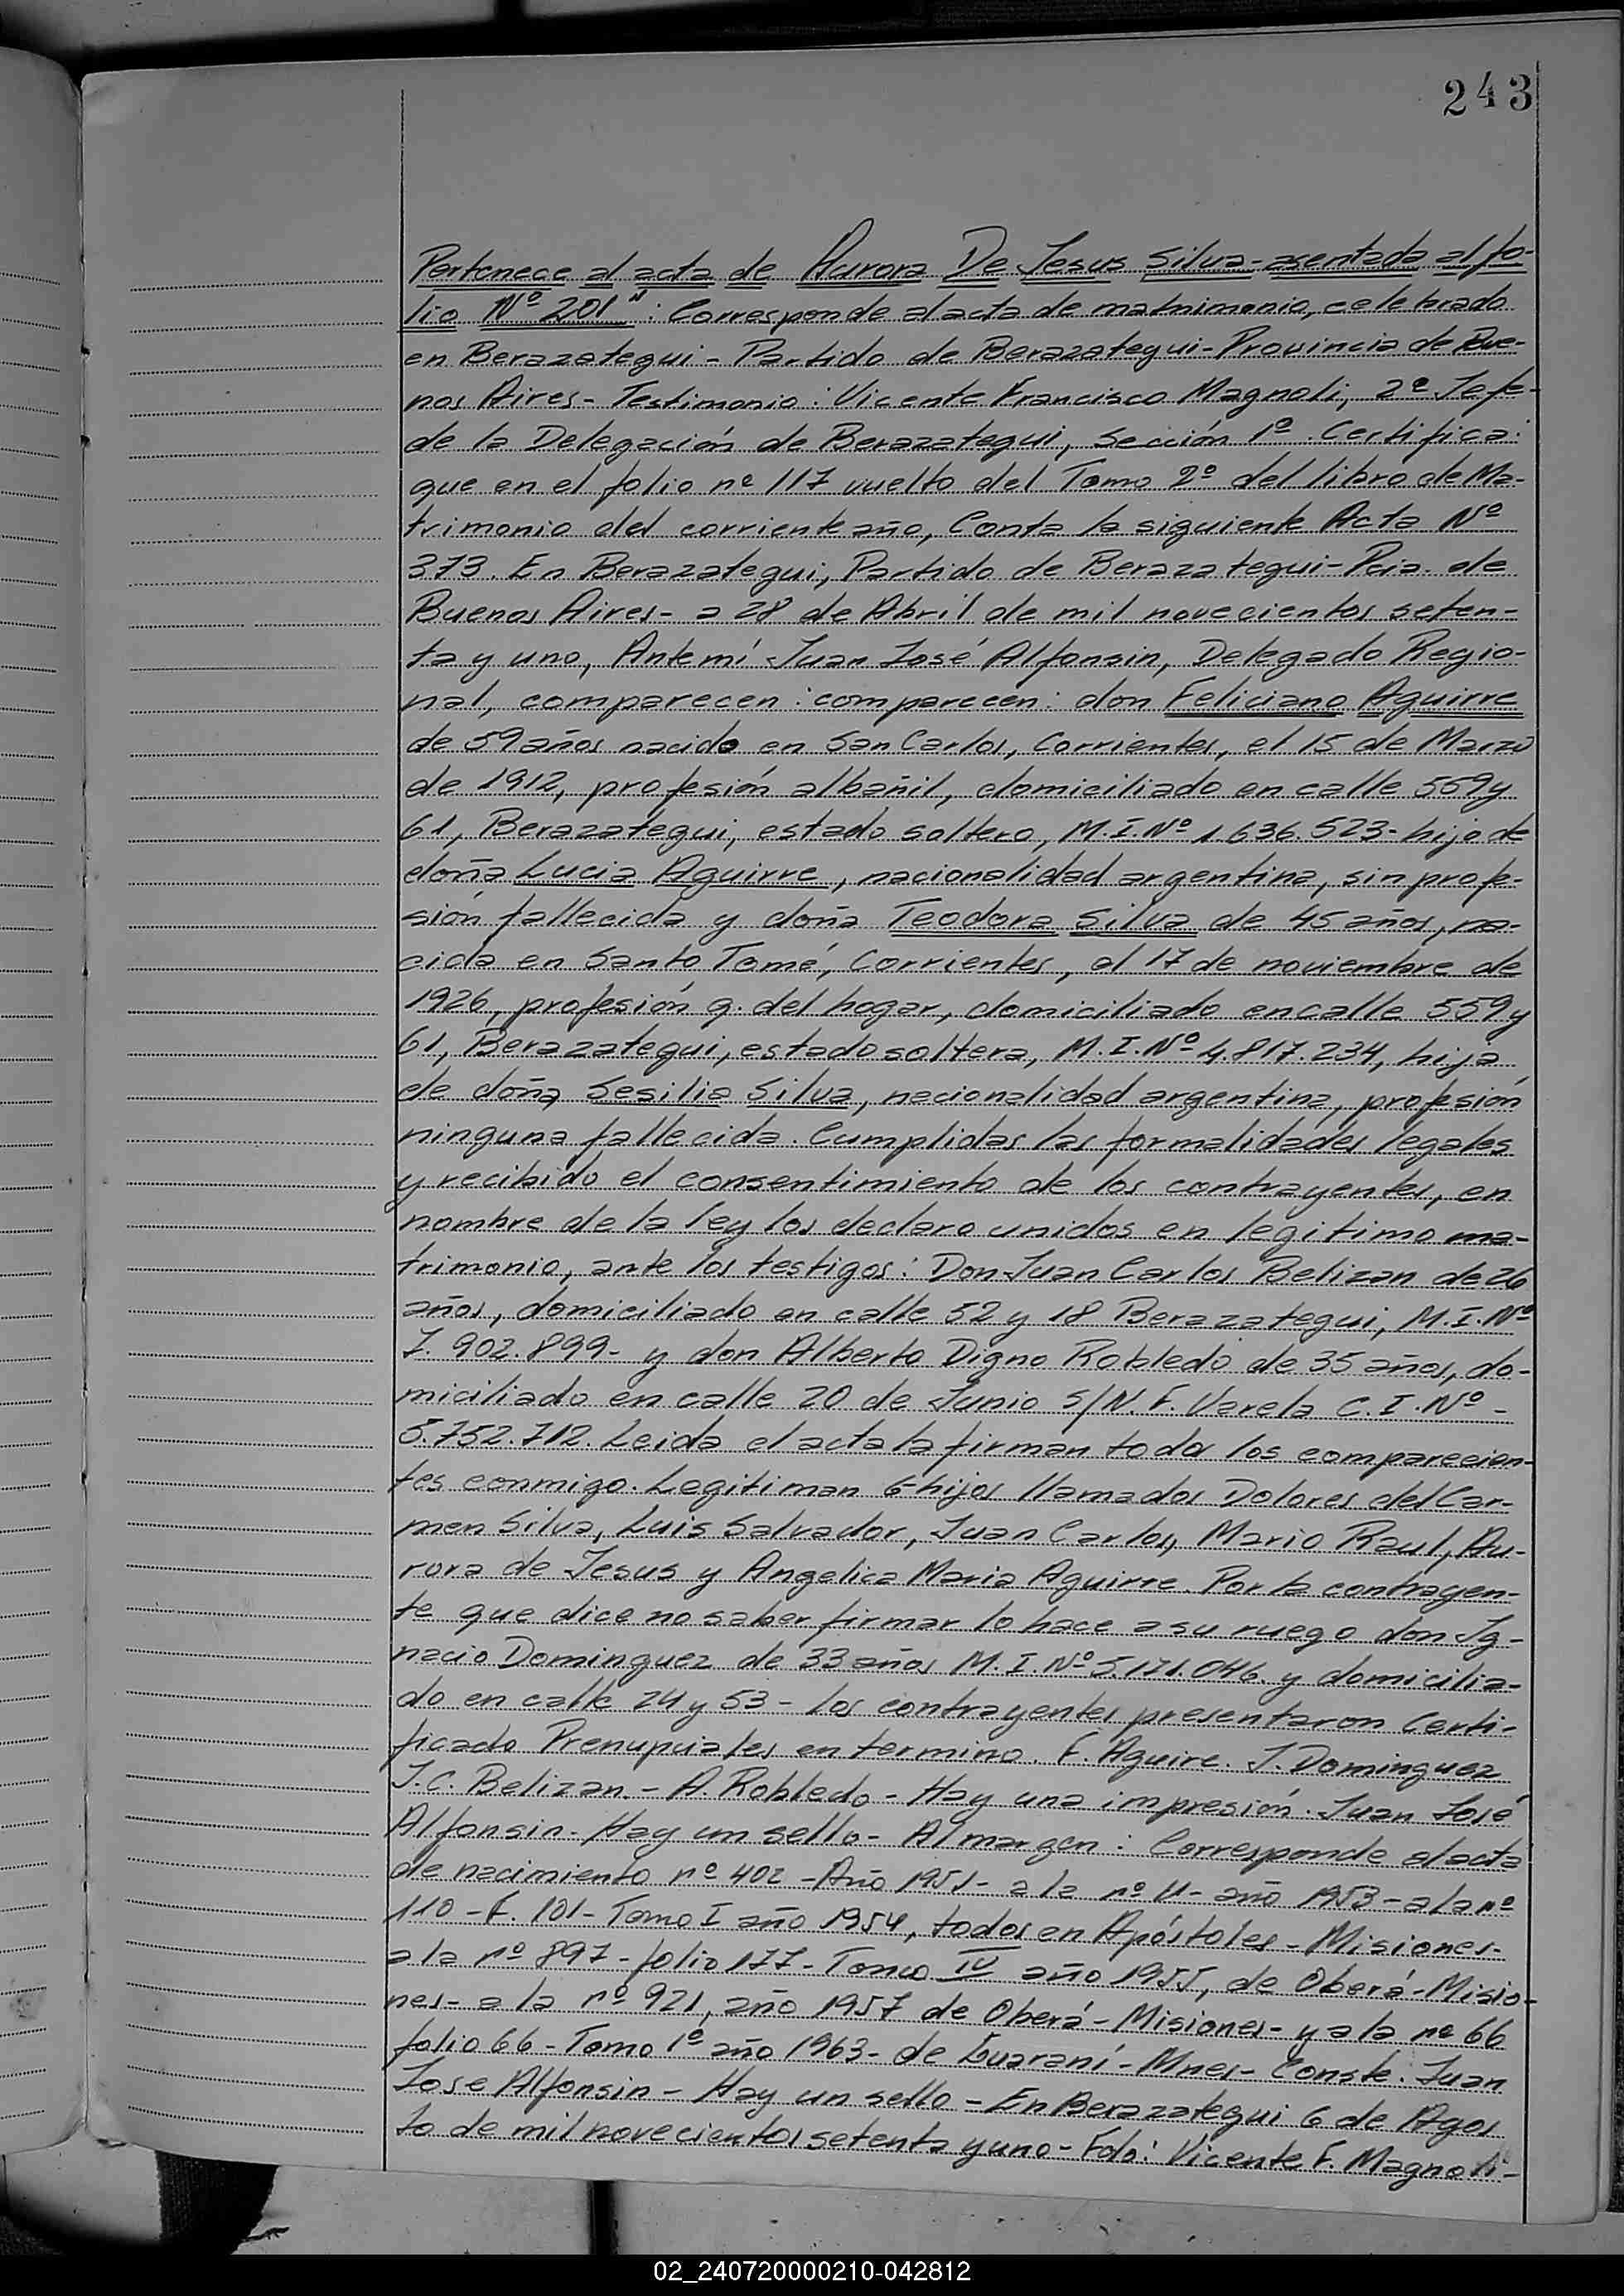 243
Pertenece al acta de Aurora De Jesus Silva - asentada al fo-
lio Nº 201": Corresponde al acta de matrimonio, celebrado
en Berazategui - Partido de Berazategui - Provincia de Bue-
nos Aires - Testimonio: Vicente Francisco Magnoli, 2º Jefe-
de la Delegación de Berazategui, Sección 1º. Certifica:
que en el folio nº 117 vuelto del Tomo 2º del libro de Ma-
trimonio del corriente año, Consta la siguiente Acta Nº
373. En Berazategui, Partido de Berazategui - Pcia. de
Buenos Aires - a 28 de Abril de mil novecientos seten-
ta y uno, Ante mí Juan José Alfonsin, Delegado Regio-
nal, comparecen: comparecen: don Feliciano Aguirre
de 59 años nacido en San Carlos, Corrientes, el 15 de Marzo
de 1912, profesión albañil, domiciliado en calle 559 y
61, Berazategui, estado soltero, M.I.Nº 1.636.523 - hijo de
doña Lucia Aguirre, nacionalidad argentina, sin profe-
sión fallecida y doña Teodora Silva de 45 años, na-
cida en Santo Tomé, Corrientes, el 17 de noviembre de
1926, profesión q. del hogar, domiciliado en calle 559 y
61, Berazategui, estado soltera, M.I.Nº 4.817.234, hija
de doña Sesilia Silva, nacionalidad argentina, profesión
ninguna fallecida. Cumplidas las formalidades legales
y recibido el consentimiento de los contrayentes, en
nombre de la ley los declaro unidos en legitimo ma-
trimonio, ante los testigos: Don Juan Carlos Belizan de 26
años, domiciliado en calle 52 y 18 Berazategui, M.I.Nº
7.902.899 - y don Alberto Digno Robledo de 35 años, do-
miciliado en calle 20 de Junio S/N. F. Varela C.I.Nº -
5.752.712. Leida el acta la firman todos los comparecien-
tes conmigo. Legitiman 6 hijos llamados Dolores del Car-
men Silva, Luis Salvador, Juan Carlos, Mario Raul, Au-
rora de Jesus y Angelica Maria Aguirre. Por la contrayen-
te que dice no saber firmar lo hace a su ruego don Ig-
nacio Dominguez de 33 años M.I.Nº 5.171.046 y domicilia-
do en calle 24 y 53 - los contrayentes presentaron Certi-
ficado Prenupciales en termino. F. Aguire. I. Dominguez
J.C. Belizan. - A. Robledo - Hay una impresión. Juan José
Alfonsin - Hay un sello - Al margen: Corresponde al acta
de nacimiento nº 402 - Año 1951 - a la nº 11 - año 1953 - a la nº
110 - F. 101 - Tomo I año 1954, todos en Apóstoles - Misiones-
a la nº 897 - folio 177 - Tomo IV año 1955, de Oberá - Misio-
nes - a la nº 921, año 1957 de Oberá - Misiones - y a la nº 66
folio 66 - Tomo 1º año 1963 - de Guaraní - Mnes - Conste. Juan
Jose Alfonsin - Hay un sello - En Berazategui 6 de Agos
to de mil novecientos setenta y uno - Fdo: Vicente F. Magnoli-
02_240720000210-042812